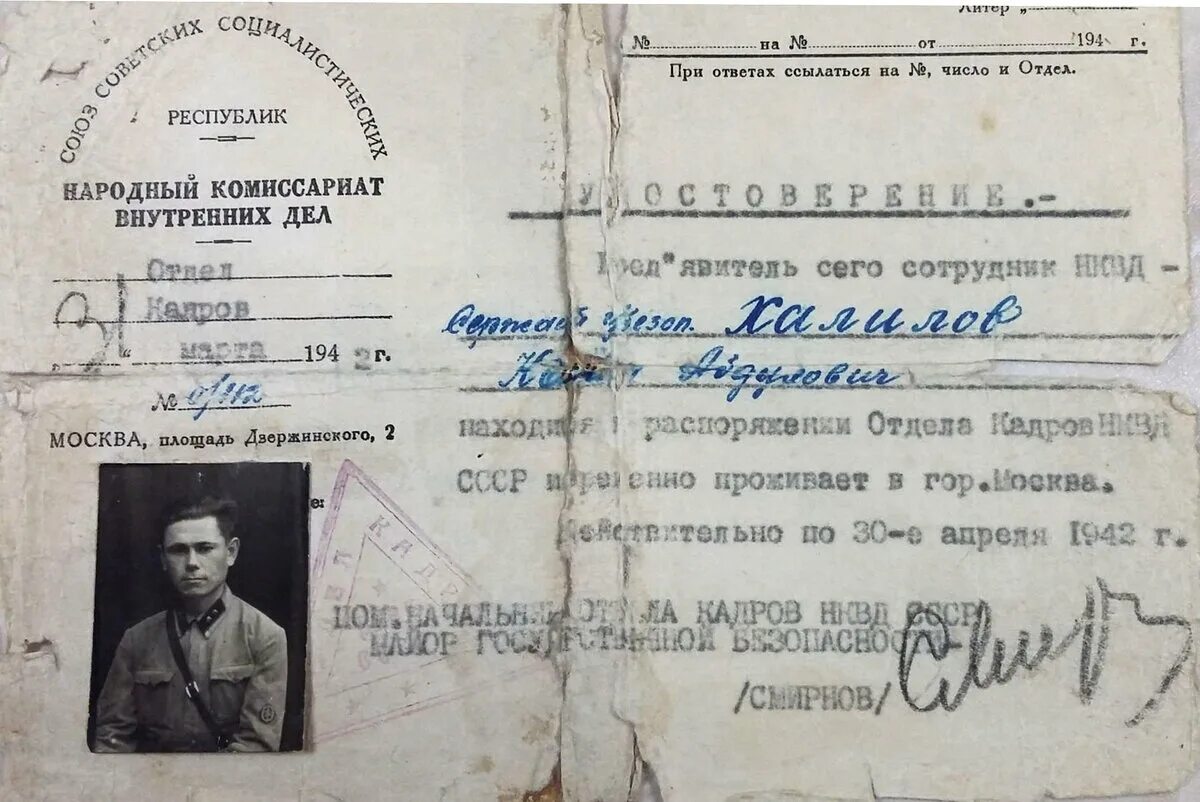 СОЮЗ СОВЕТСКИХ СОЦИАЛИСТИЧЕСКИХ
РЕСПУБЛИК
НАРОДНЫЙ КОМИССАРИАТ
ВНУТРЕННИХ ДЕЛ
Отдел
Кадров
31 марта 1942 г.
№ 0/112
МОСКВА, площадь Дзержинского, 2
Литер „
№ на № от 194 г.
При ответах ссылаться на №, число и Отдел.
УДОСТОВЕРЕНИЕ.-
Пред"явитель сего сотрудник НКВД -
Сержант Госбезоп. Халилов
Айдулович
находится в распоряжении Отдела Кадров НКВД
СССР и временно проживает в гор.Москва.
Действительно по 30-е апреля 1942 г.
ПОМ.НАЧАЛЬНИКА ОТДЕЛА КАДРОВ НКВД СССР
МАЙОР ГОСУДАРСТВЕННОЙ БЕЗОПАСНОСТИ
/СМИРНОВ/
КАДР